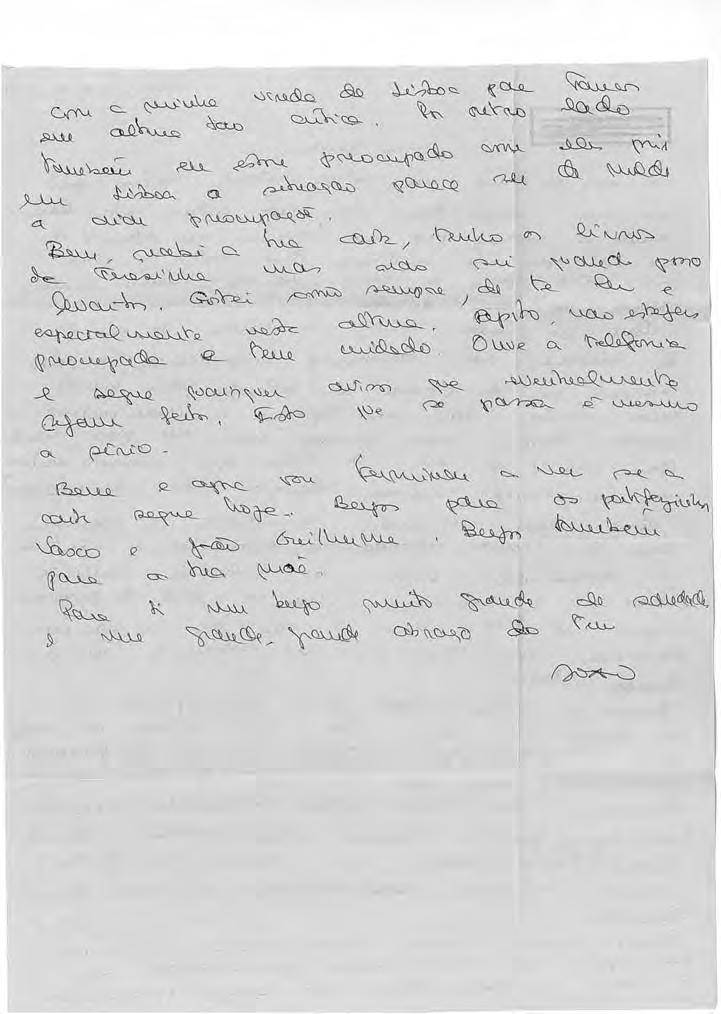 com a minha vinda de Lisboa para
em altura tão crítica. Por outro lado
também eu estou preocupado com eles pois
em Lisboa a situação parece ser de molde
a criar preocupação.
Bem, recebi a tua carta, tenho os livros
da Teresinha mas não sei quando posso
levantá-los. Gostei como sempre, de te ler e
especialmente nesta altura. não estejas
preocupada e tem cuidado. Ouve a telefonia
e segue quaisquer avisos que eventualmente
sejam feitos. Isto que se passa é mesmo
a sério.
Bem e agora vou terminar a ver se a
carta segue hoje. Beijos para os
Vasco e João Guilherme. Beijos também
para a tua mãe.
Para ti um beijo muito grande de saudade
e um grande, grande abraço do teu
João